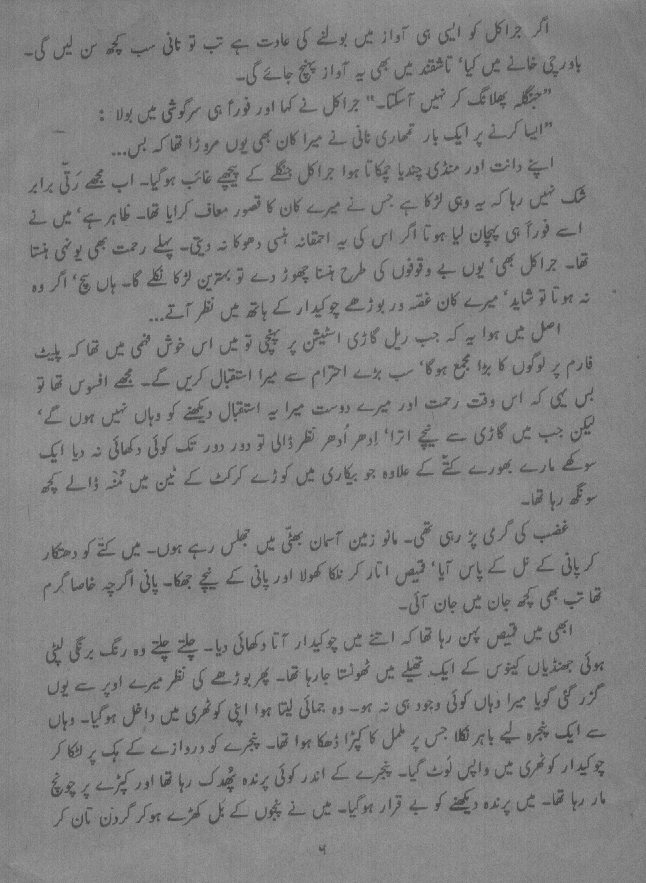 اگر جراکل کو ایسی ہی آواز میں بولنے کی عادت ہے تب تو نانی سب کچھ سن لیں گی۔
باورچی خانے میں کیا، تاشقند میں بھی یہ آواز پہنچ جائے گی۔
”جنگلہ پھلانگ کر نہیں آسکتا۔“ جراکل نے کہا اور فوراً ہی سرگوشی میں بولا :
”ایسا کرنے پر ایک بار تمھاری نانی نے میرا کان بھی یوں مروڑا تھا کہ بس...
اپنے دانت اور منڈی چندیا چمکاتا ہوا جراکل جنگلے کے پیچھے غائب ہوگیا۔ اب مجھے رَتّی برابر
شک نہیں رہا کہ یہ وہی لڑکا ہے جس نے میرے کان کا قصور معاف کرایا تھا۔ ظاہر ہے، میں نے
اسے فوراً ہی پہچان لیا ہوتا اگر اس کی یہ احمقانہ ہنسی دھوکا نہ دیتی۔ پہلے رحمت بھی یونہی ہنستا
تھا۔ جراکل بھی، یوں بے وقوفوں کی طرح ہنسنا چھوڑ دے تو بہترین لڑکا نکلے گا۔ ہاں سچ، اگر وہ
نہ ہوتا تو شاید، میرے کان غصّہ ور بوڑھے چوکیدار کے ہاتھ میں نظر آتے...
اصل میں ہوا یہ کہ جب ریل گاڑی اسٹیشن پر پہنچی تو میں اس خوش فہمی میں تھا کہ پلیٹ
فارم پر لوگوں کا بڑا مجمع ہوگا، سب بڑے احترام سے میرا استقبال کریں گے۔ مجھے افسوس تھا تو
بس یہی کہ اس وقت رحمت اور میرے دوست میرا یہ استقبال دیکھنے کو وہاں نہیں ہوں گے،
لیکن جب میں گاڑی سے نیچے اترا، اِدھر اُدھر نظر ڈالی تو دور دور تک کوئی دکھائی نہ دیا ایک
سوکھے مارے بھورے کتّے کے علاوہ جو بیکاری میں کوڑے کرکٹ کے ٹین میں مُنْہ ڈالے کچھ
سونگھ رہا تھا۔
غضب کی گرمی پڑ رہی تھی۔ مانو زمین آسمان بھٹّی میں جھلس رہے ہوں۔ میں کتّے کو دھتکار
کر پانی کے نل کے پاس آیا، قمیص اتار کر نلکا کھولا اور پانی کے نیچے جھکا۔ پانی اگرچہ خاصا گرم
تھا تب بھی کچھ جان میں جان آئی۔
ابھی میں قمیص پہن رہا تھا کہ اتنے میں چوکیدار آتا دکھائی دیا۔ چلتے چلتے وہ رنگ برنگی لپٹی
ہوئی جھنڈیاں کینوس کے ایک تھیلے میں ٹھونستا جارہا تھا۔ پھر بوڑھے کی نظر میرے اوپر سے یوں
گزر گئی گویا میرا وہاں کوئی وجود ہی نہ ہو۔ وہ جمائی لیتا ہوا اپنی کوٹھری میں داخل ہوگیا۔ وہاں
سے ایک پنجرہ لیے باہر نکلا جس پر ململ کا کپڑا ڈھکا ہوا تھا۔ پنجرے کو دروازے کے ہُک پر لٹکا کر
چوکیدار کوٹھری میں واپس لوٹ گیا۔ پنجرے کے اندر کوئی پرندہ پُھدک رہا تھا اور کپڑے پر چونچ
مار رہا تھا۔ میں پرندہ دیکھنے کو بے قرار ہوگیا۔ میں نے پنجوں کے بَل کھڑے ہوکر گردن تان کر